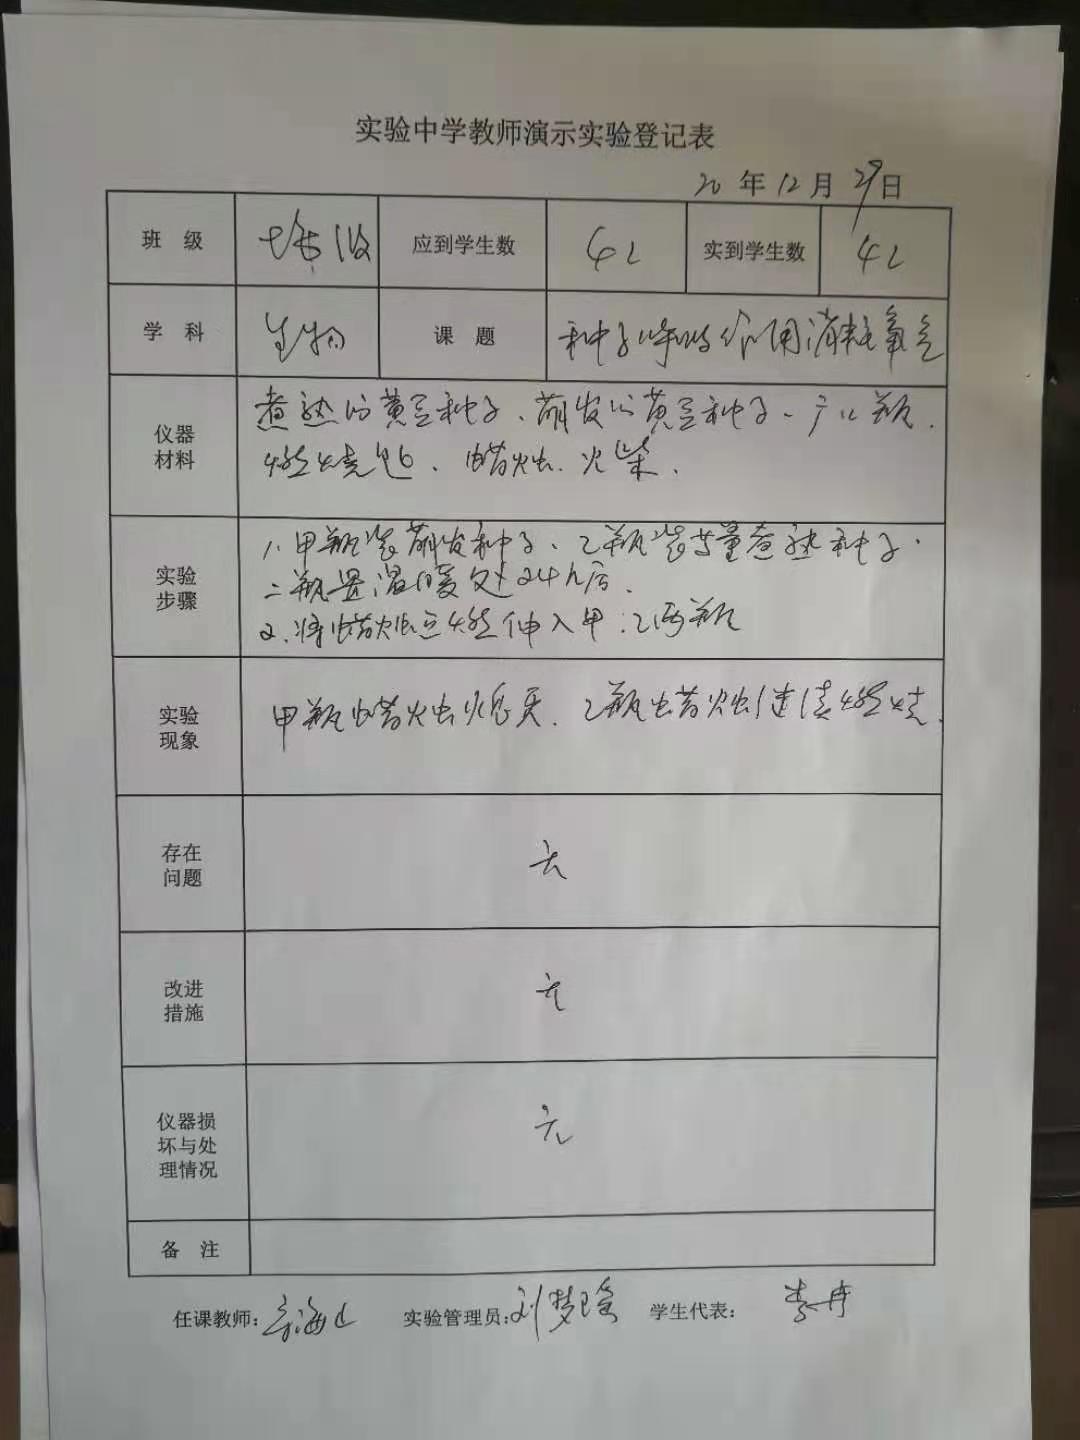 实验中学教师演示实验登记表
20 年 12 月 29 日
班 级 应到学生数 42 实到学生数 42
学 科 生物 课 题 种子呼吸作用消耗氧气
仪器 材料
煮熟的黄豆种子、萌发的黄豆种子、广口瓶、
燃烧匙、蜡烛、火柴.
实验 步骤
1. 甲瓶装萌发种子、乙瓶装等量煮熟种子.
二瓶置温暖处24h后.
2. 将蜡烛点燃伸入甲、乙两瓶
实验 现象
甲瓶蜡烛熄灭、乙瓶蜡烛继续燃烧.
存在 问题
无
改进 措施
无
仪器损 坏与处 理情况
无
备 注
任课教师: 实验管理员: 刘梦瑶 学生代表: 李冉